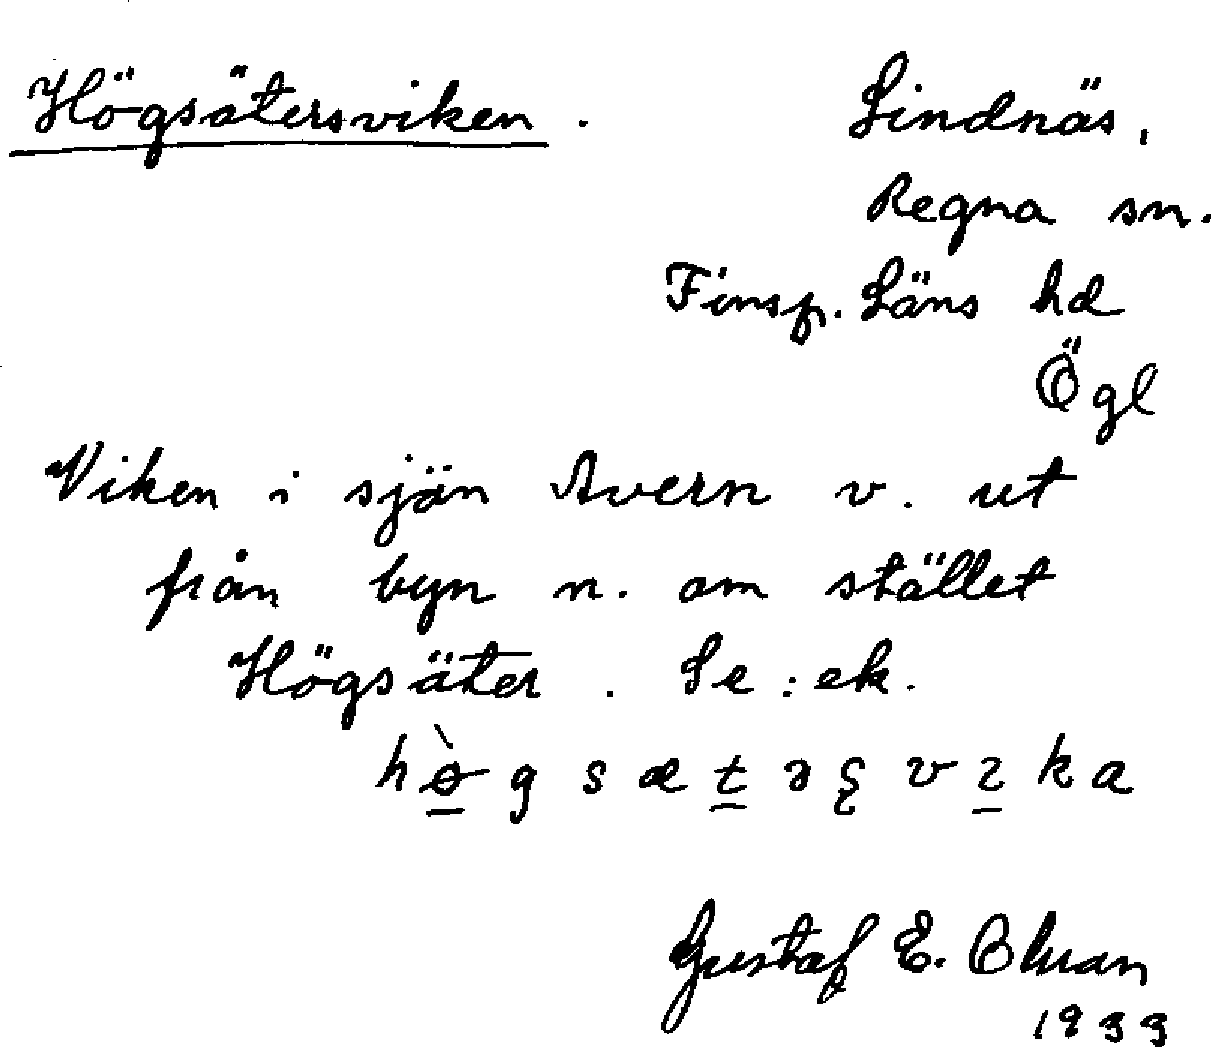 Högsätersviken. Lindnäs,
Regna sn.
Finsp. Läns hd
Ögl
Viken i sjön Avern v. ut
från byn n. om stället
Högsäter. Se: ek.
Gustaf E.
1933